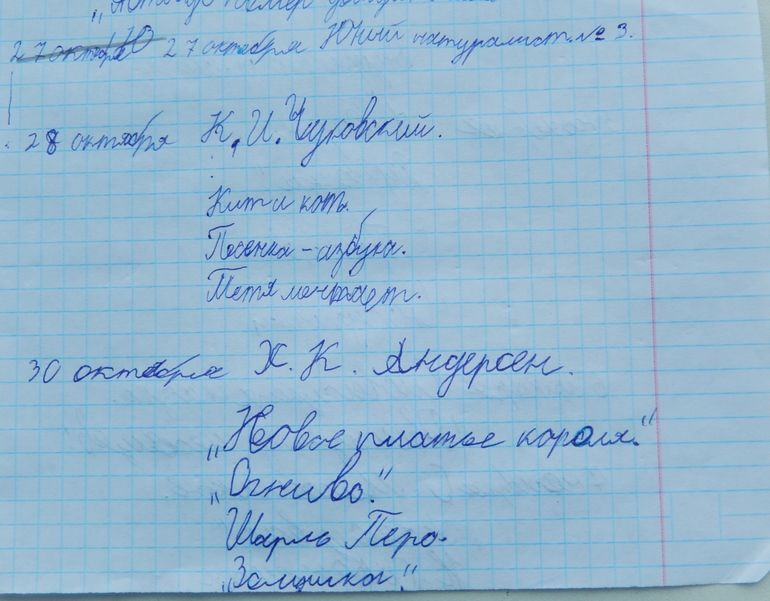 номер
27 октября 27 октября Юный натуралист. № 3.
28 октября К. И. Чуковский.
Кит и кот.
Песенка - азбука.
Петя мечтает.
30 октября Х. К. Андерсен.
„Новое платье короля."
„Огниво."
Шарль Перо.
„Золушка."